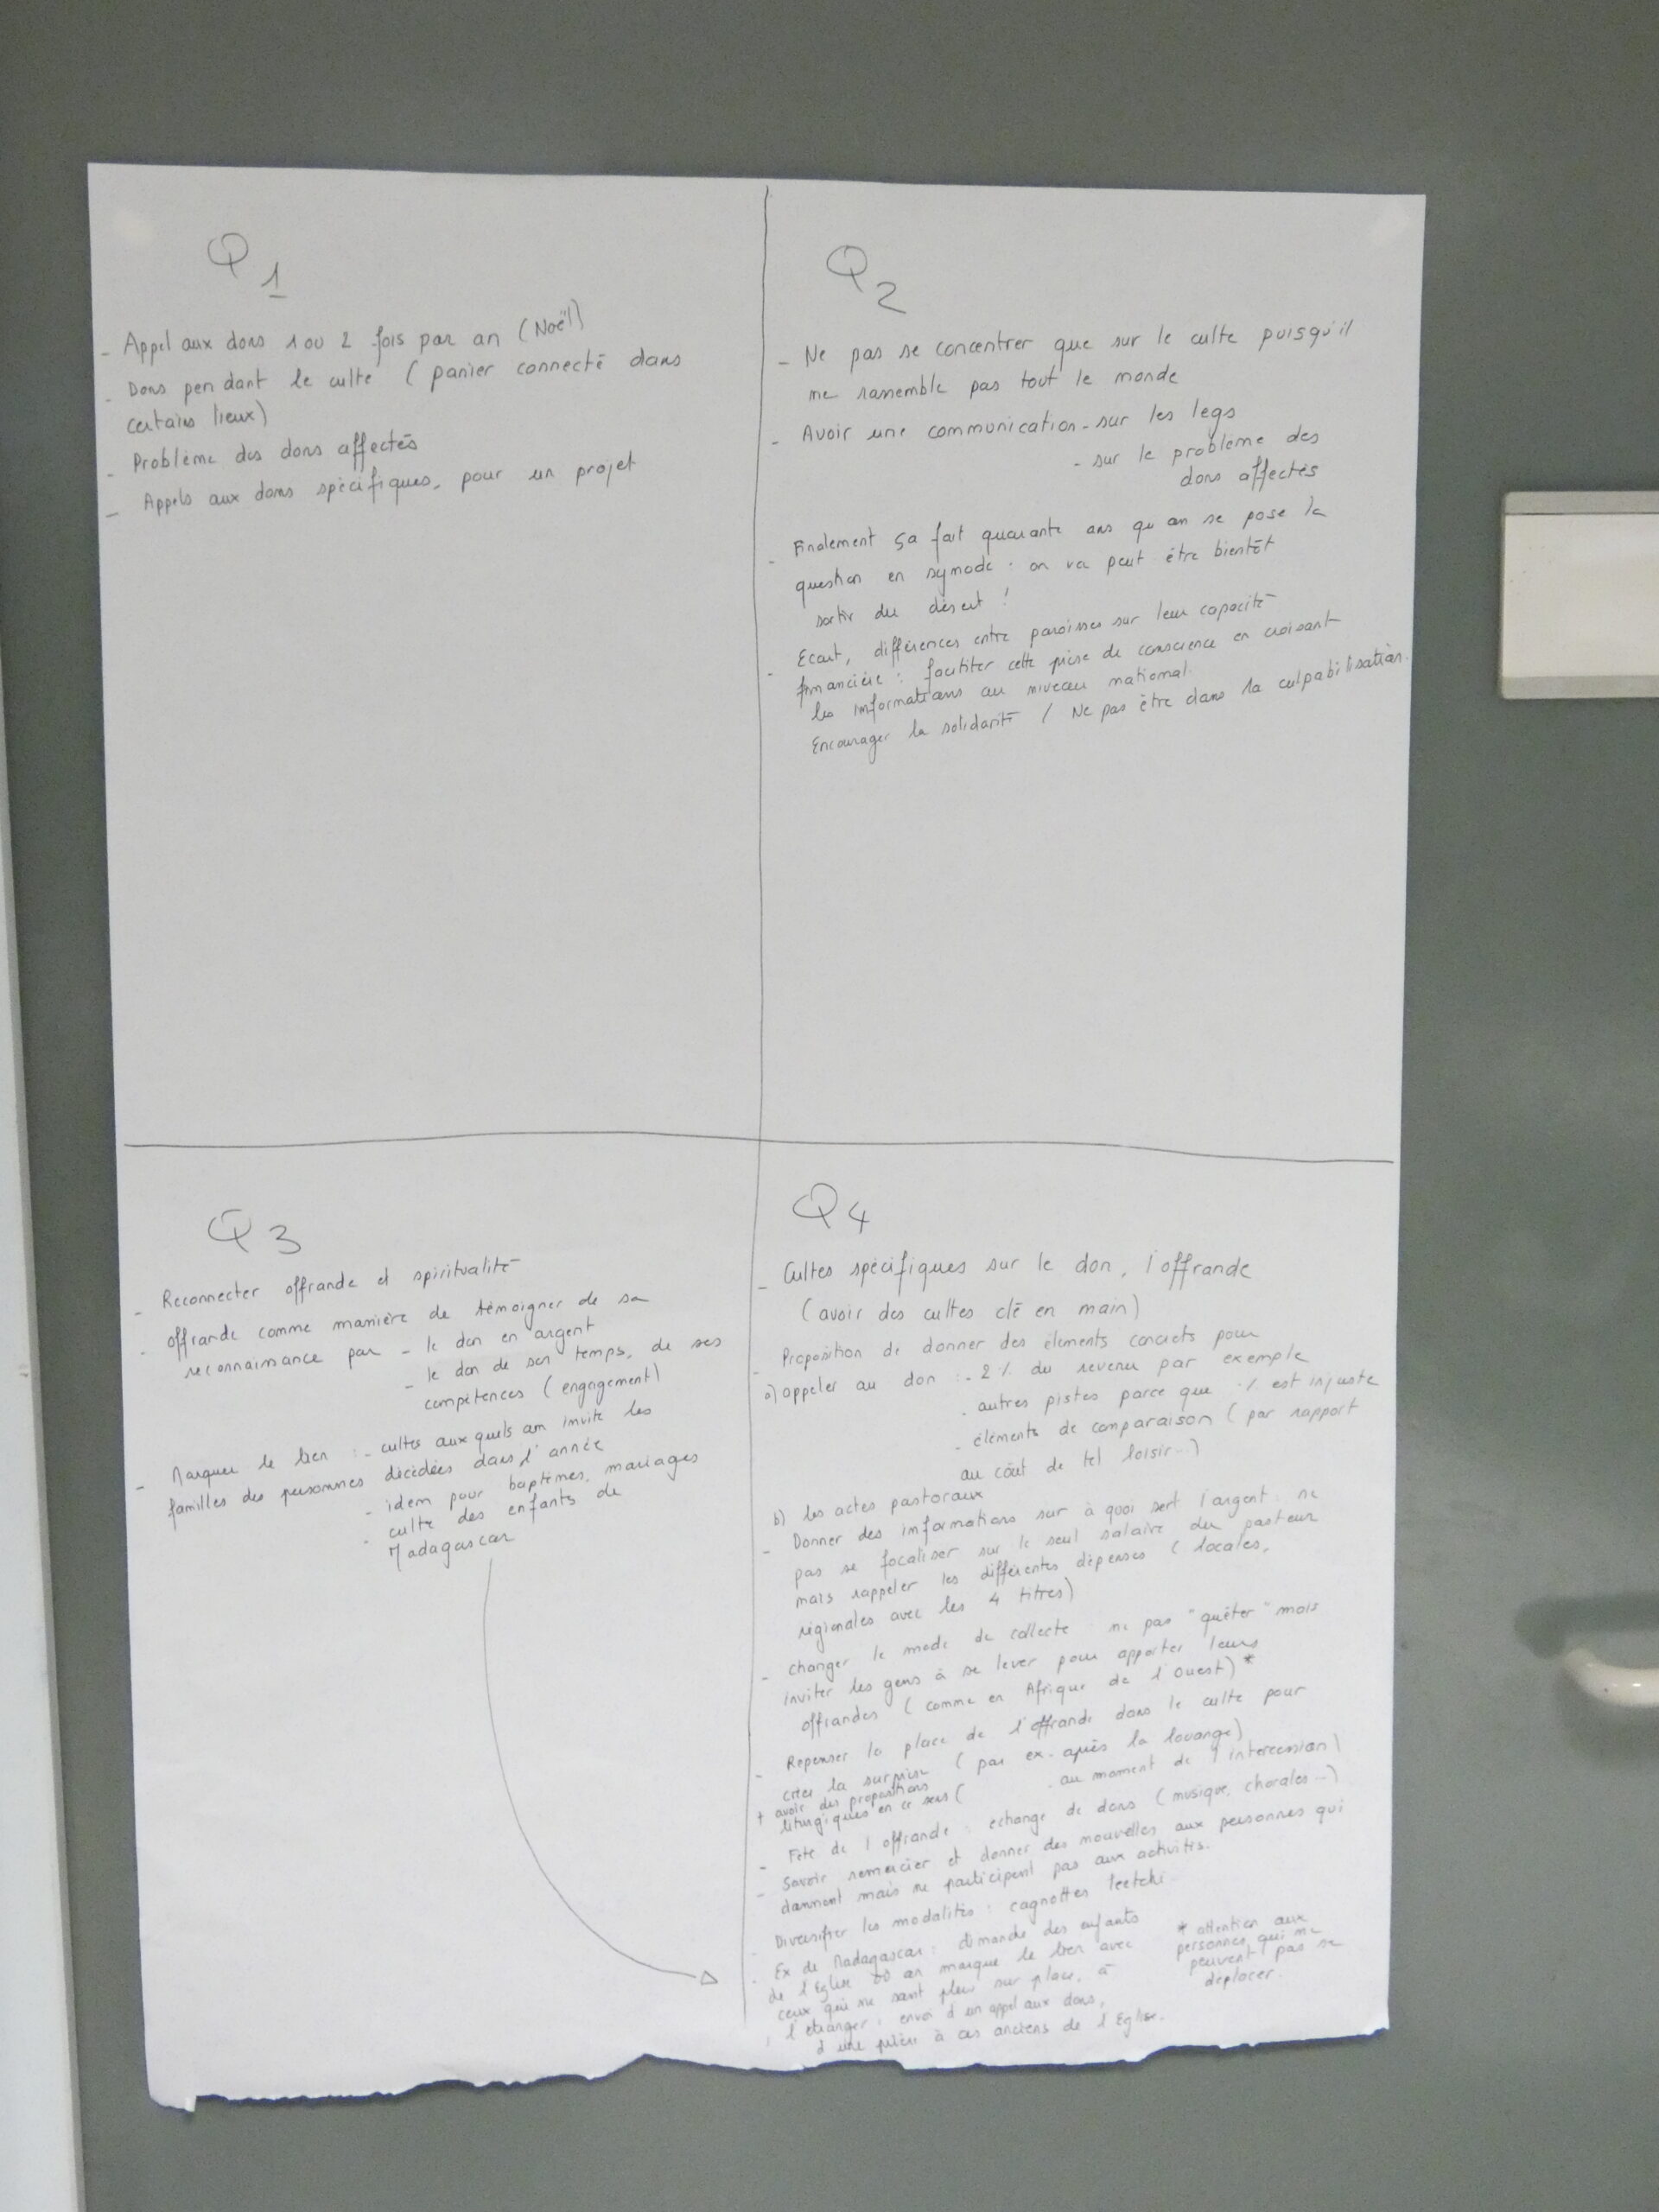 Q1
- Appel aux dons 1 ou 2 fois par an (Noël)
- Dons pendant le culte (panier connecté dans
certains lieux)
- Problème des dons affectés
- Appels aux dons spécifiques, pour un projet
Q2
- Ne pas se concentrer que sur le culte puisqu'il
ne rassemble pas tout le monde
- Avoir une communication - sur les legs
- sur le problème des
dons affectés
- Finalement ça fait quarante ans qu'on se pose la
question en synode : on va peut être bientôt
sortir du désert !
- Ecart, différences entre paroisses sur leur capacité
financière : faciliter cette prise de conscience en croisant
les informations au niveau national.
Encourager la solidarité / Ne pas être dans la culpabilisation.
Q3
- Reconnecter offrande et spiritualité
- offrande comme manière de témoigner de sa
reconnaissance par - le don en argent
- le don de son temps, de ses
compétences (engagement)
- Marquer le lien : - cultes auxquels on invite les
familles des personnes décédées dans l'année
- idem pour baptêmes, mariages
- culte des enfants de
Madagascar
Q4
- Cultes spécifiques sur le don, l'offrande
(avoir des cultes clé en main)
- Proposition de donner des éléments concrets pour
a) appeler au don : - 2 % du revenu par exemple
- autres pistes parce que % est injuste
- éléments de comparaison (par rapport
au coût de tel loisir...)
b) les actes pastoraux
- Donner des informations sur à quoi sert l'argent : ne
pas se focaliser sur le seul salaire du pasteur
mais rappeler les différentes dépenses (locales,
régionales avec les 4 titres)
- changer le mode de collecte : ne pas "quêter" mais
inviter les gens à se lever pour apporter leurs
offrandes (comme en Afrique de l'Ouest) *
- Repenser la place de l'offrande dans le culte pour
créer la surprise (par ex. après la louange)
+ avoir des propositions
liturgiques en ce sens ( . au moment de l'intercession)
- Fête de l'offrande : échange de dons (musique, chorales...)
- Savoir remercier et donner des nouvelles aux personnes qui
donnent mais ne participent pas aux activités.
- Diversifier les modalités : cagnottes leetchi
- Ex de Madagascar : dimanche des enfants
de l'Eglise où on marque le lien avec
ceux qui ne sont plus sur place, à
l'étranger : envoi d'un appel aux dons,
d'une prière à ces anciens de l'Eglise.
* attention aux
personnes qui ne
peuvent pas se
déplacer.